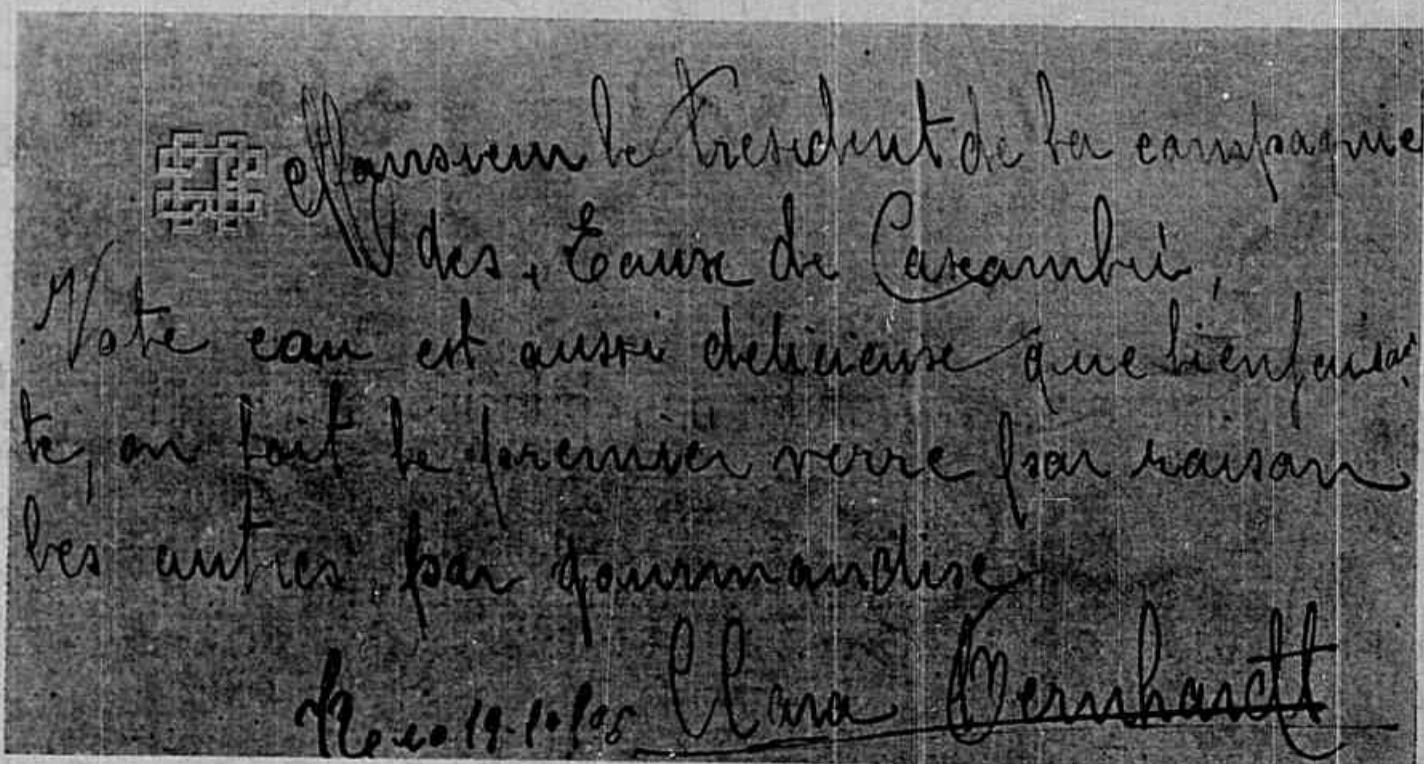 Monsieur le President de la compagnie
des, Eaux de Caxambú,
Vote eau est aussi delicieuse que bienfaisan
te, on boit le premier verre par raison
les autres par gourmandise
19-10-905 Clara Bernhardt